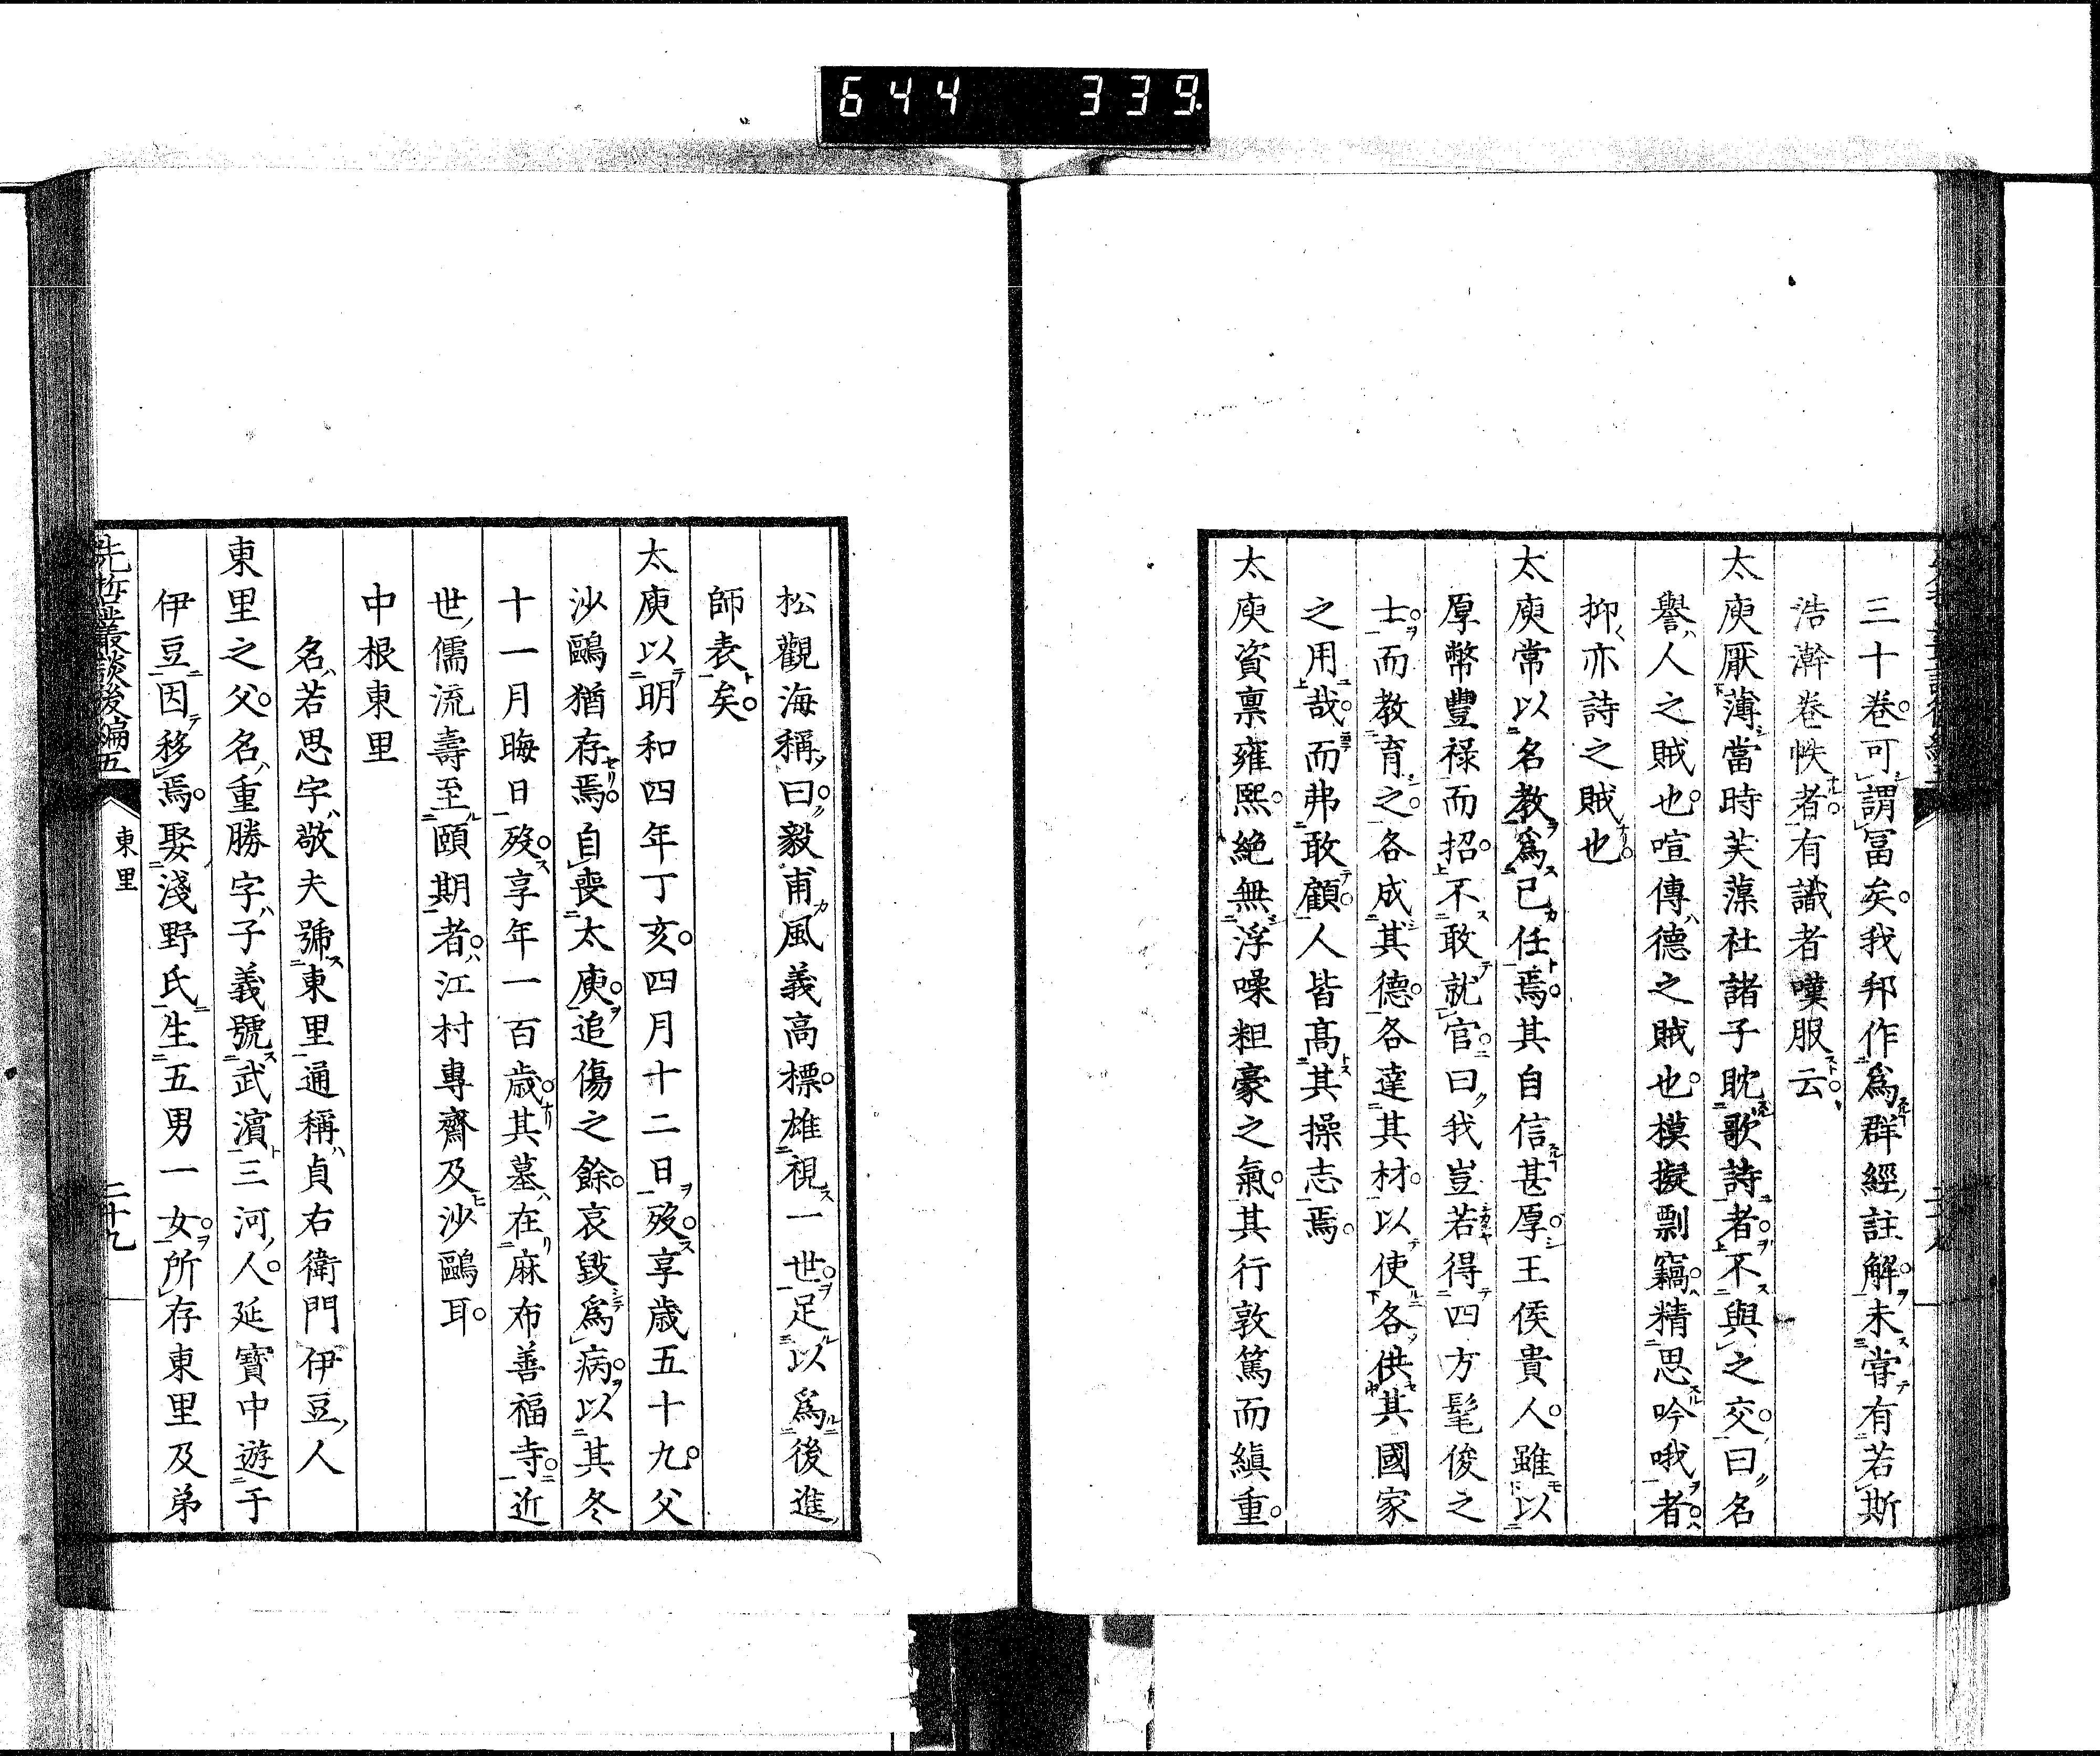 644 339
三十巻可謂冨矣我邦作爲群經註解未甞有若斯
浩澣卷帙者有識者嘆服云
太庾厭薄當時芙蕖社諸子耽歌詩者不與之交曰名
譽人之賊也喧傳德之賊也模擬剽竊精思吟哦者
抑亦詩之賊也
太庾常以名教爲已任焉其自信甚厚王侯貴人雖以
厚幣豐禄而招不敢就官曰我豈若得四方髦俊之
士而教育之各成其德各達其材以使各供其國家
之用哉而弗敢顧人皆高其操志焉
太庾資禀雍熙絶無浮噪粗豪之氣其行敦篤而縝重
松觀海稱曰毅甫風義高標雄視一世足以爲後進
師表矣
太庾以明和四年丁亥四月十二日歿享歳五十九父
沙鷗猶存焉自喪太庾追傷之餘哀毀爲病以其冬
十一月晦日歿享年一百歳其墓在麻布善福寺近
世儒流壽至頤期者江村專齋及沙鷗耳
中根東里
名若思字敬夫號東里通稱貞右衛門伊豆人
東里之父名重勝字子義號武濱三河人延寶中遊于
伊豆因移焉娶淺野氏生五男一女所存東里及弟
先哲叢談後編五 東里 二十九